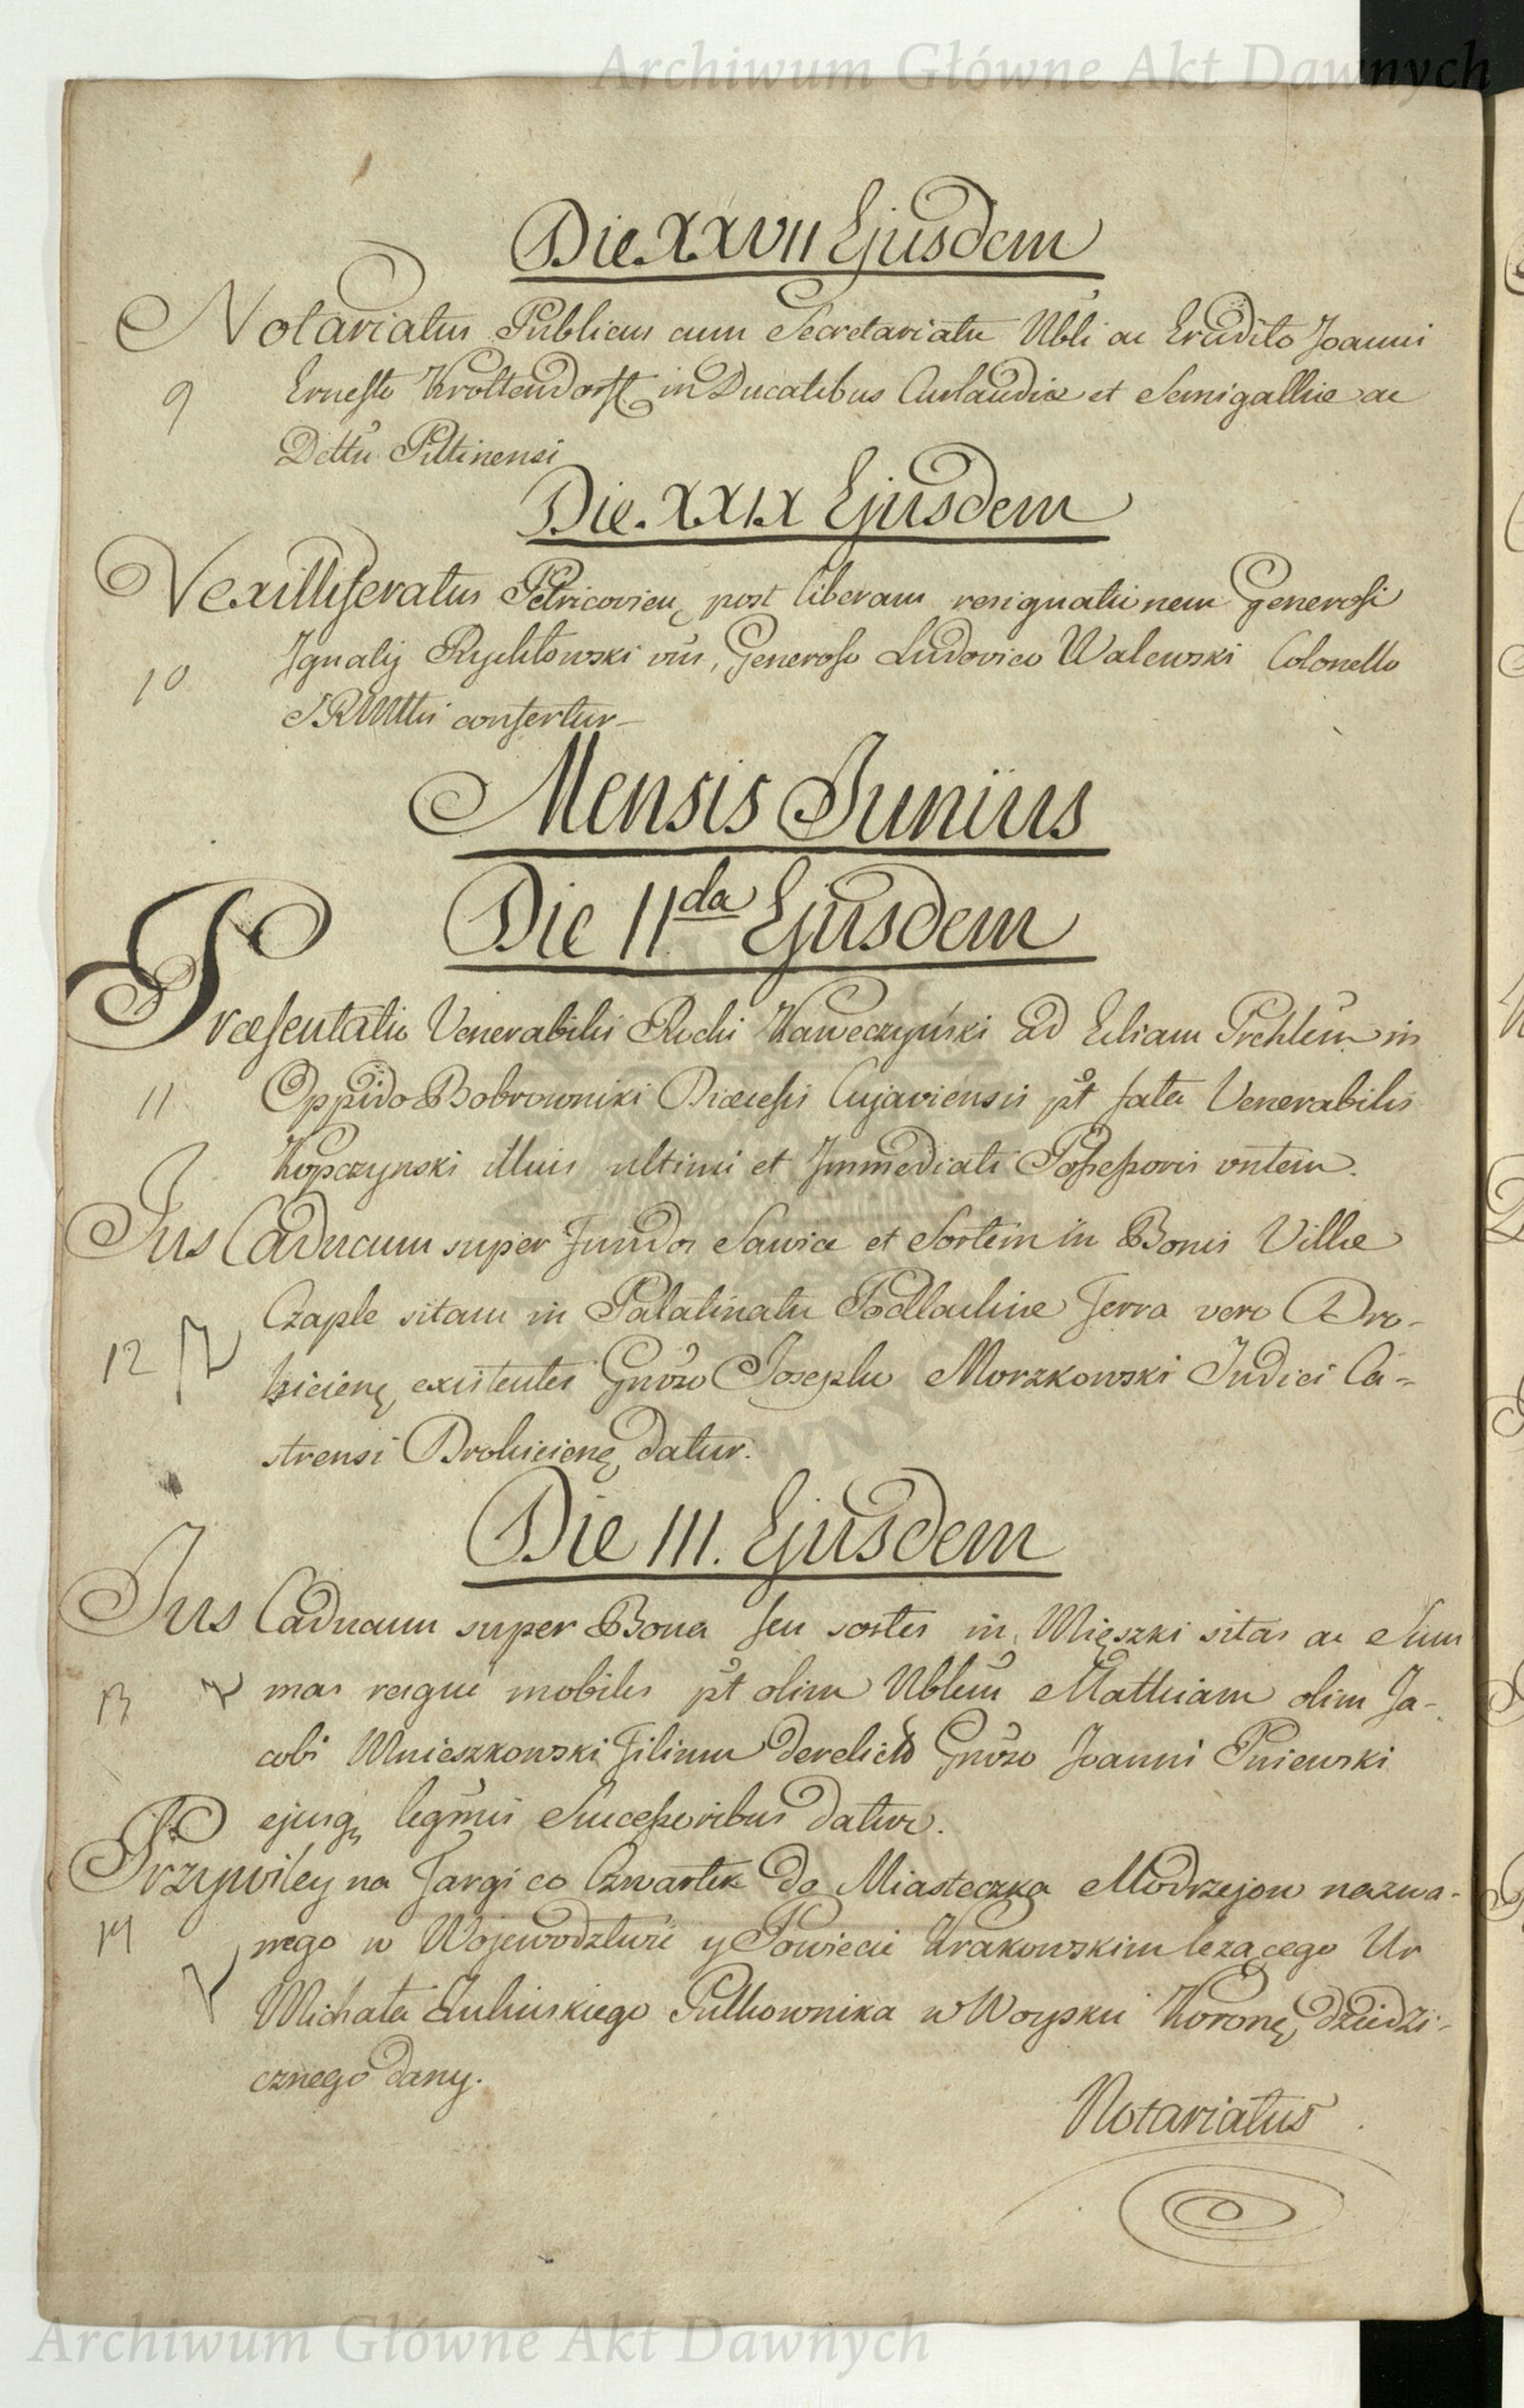 Archiwum Główne Akt Dawnych
Die XXVII Ejusdem
Notariatus Publicus cum Secretariatu Nbli ac Erudito Joanni
9 Ernesto Kroltendorff in Ducatibus Curlandiæ et Semigalliæ ac
Dcttu Piltinensi
Die XXIX Ejusdem
Vexilliferatus Petricovien, post liberam resignationem Generosi
10 Ignatij Rychłowski viis, Generoso Ludovico Walewski Colonello
SRMttis confertur
Mensis Junius
Die IIda Ejusdem
Præsentatio Venerabilis Rochi Kaweczyński ad Ecliam Prchlem in
11 Oppido Bobrowniki Diæcesis Cujaviensis pt fata Venerabilis
Kopczynski illius ultimi et Immediati Possessoris vntem.
Jus Caducum super Fundos Sawice et Sortem in Bonis Villæ
Czaple sitam in Palatinatu Podlachiæ Terra vero Dro-
12 hicien, existentes Gnoso Josepho Morzkowski Judici Ca-
strensi Drohicien, datur.
Die III. Ejusdem
Jus Caducum super Bona seu sortes in Mięszki sitas ac Sum
13 mas resque mobiles pt olim Nblem Mathiam olim Ja-
cobi Mnieszkowski Filium derelict Gnoso Joanni Pniewski
ejusq, legmis Successoribus datur.
Przywiley na Targi co Czwartek do Miasteczka Modrzejow nazwa-
14 nego w Wojewodztwie y Powiecie Krakowskim lezącego Ur
Michała Pułkownika w Woysku Koron, dziedzi-
cznego dany.
Notariatus
Archiwum Główne Akt Dawnych